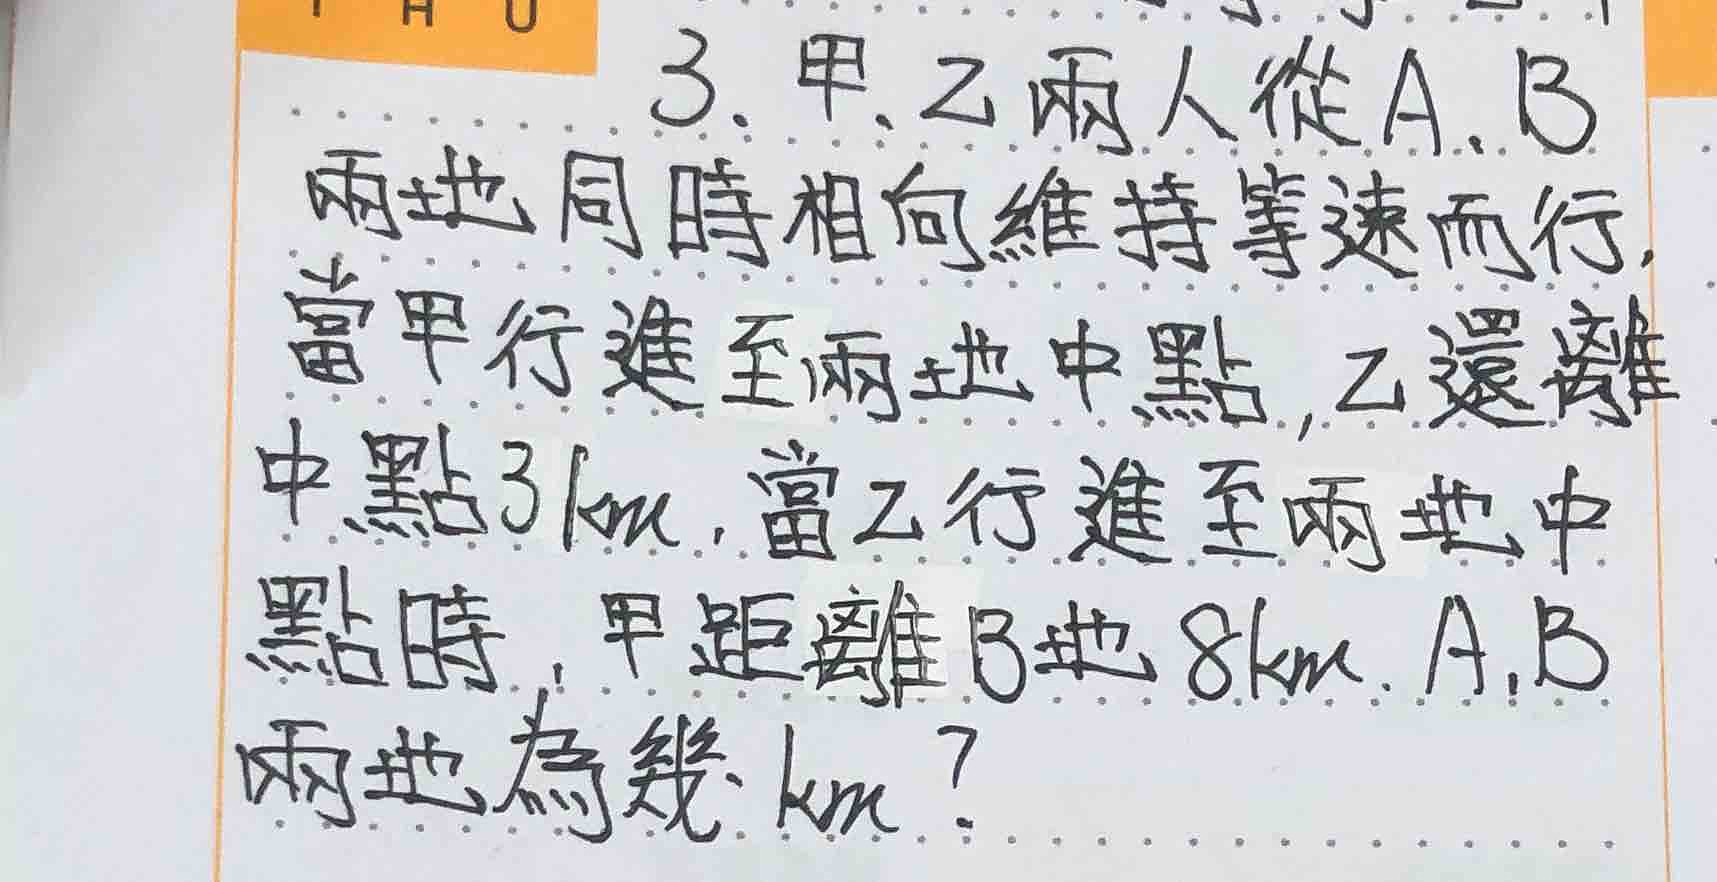 THU
3. 甲、乙兩人從A、B
兩地同時相向維持等速而行,
當甲行進至兩地中點,乙還離
中點3km. 當乙行進至兩地中
點時,甲距離B地8km. A、B
兩地為幾km?